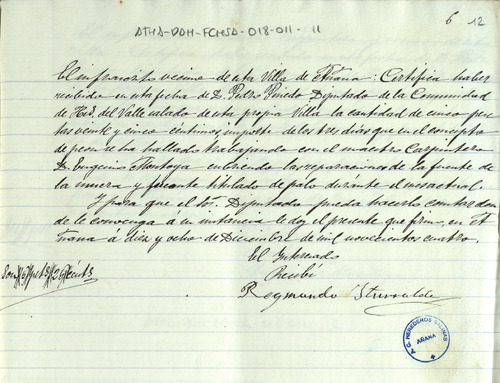 6 12
ATHA-DAH-FCHSA-018-011-11
El infrascrito vecino de esta Villa de Añana: Certifica haber
recibido en esta fecha de D. Pedro Pinedo Diputado de la Comunidad
de H.S. del Valle salado de esta propia Villa la cantidad de cinco pese
tas veinte y cinco centimos, importe de los tres dias que en el concepto
de peon se ha hallado trabajando con el maestro Carpintero
D. Eugenio Montoya en las reparaciones de la fuente
de la muera y titulado de palo durante el mes actual.
Y para que el Sor. Diputado pueda hacerlo constar don
de le convenga á su instancia le doy el presente que firmo, en
Añana á diez y ocho de Diciembre de mil novecientos cuatro.
El Interesado
Recibí
Son 5 pts 25 cénts
Regmundo Iturralde
G. HEREDEROS SALINAS
AÑANA